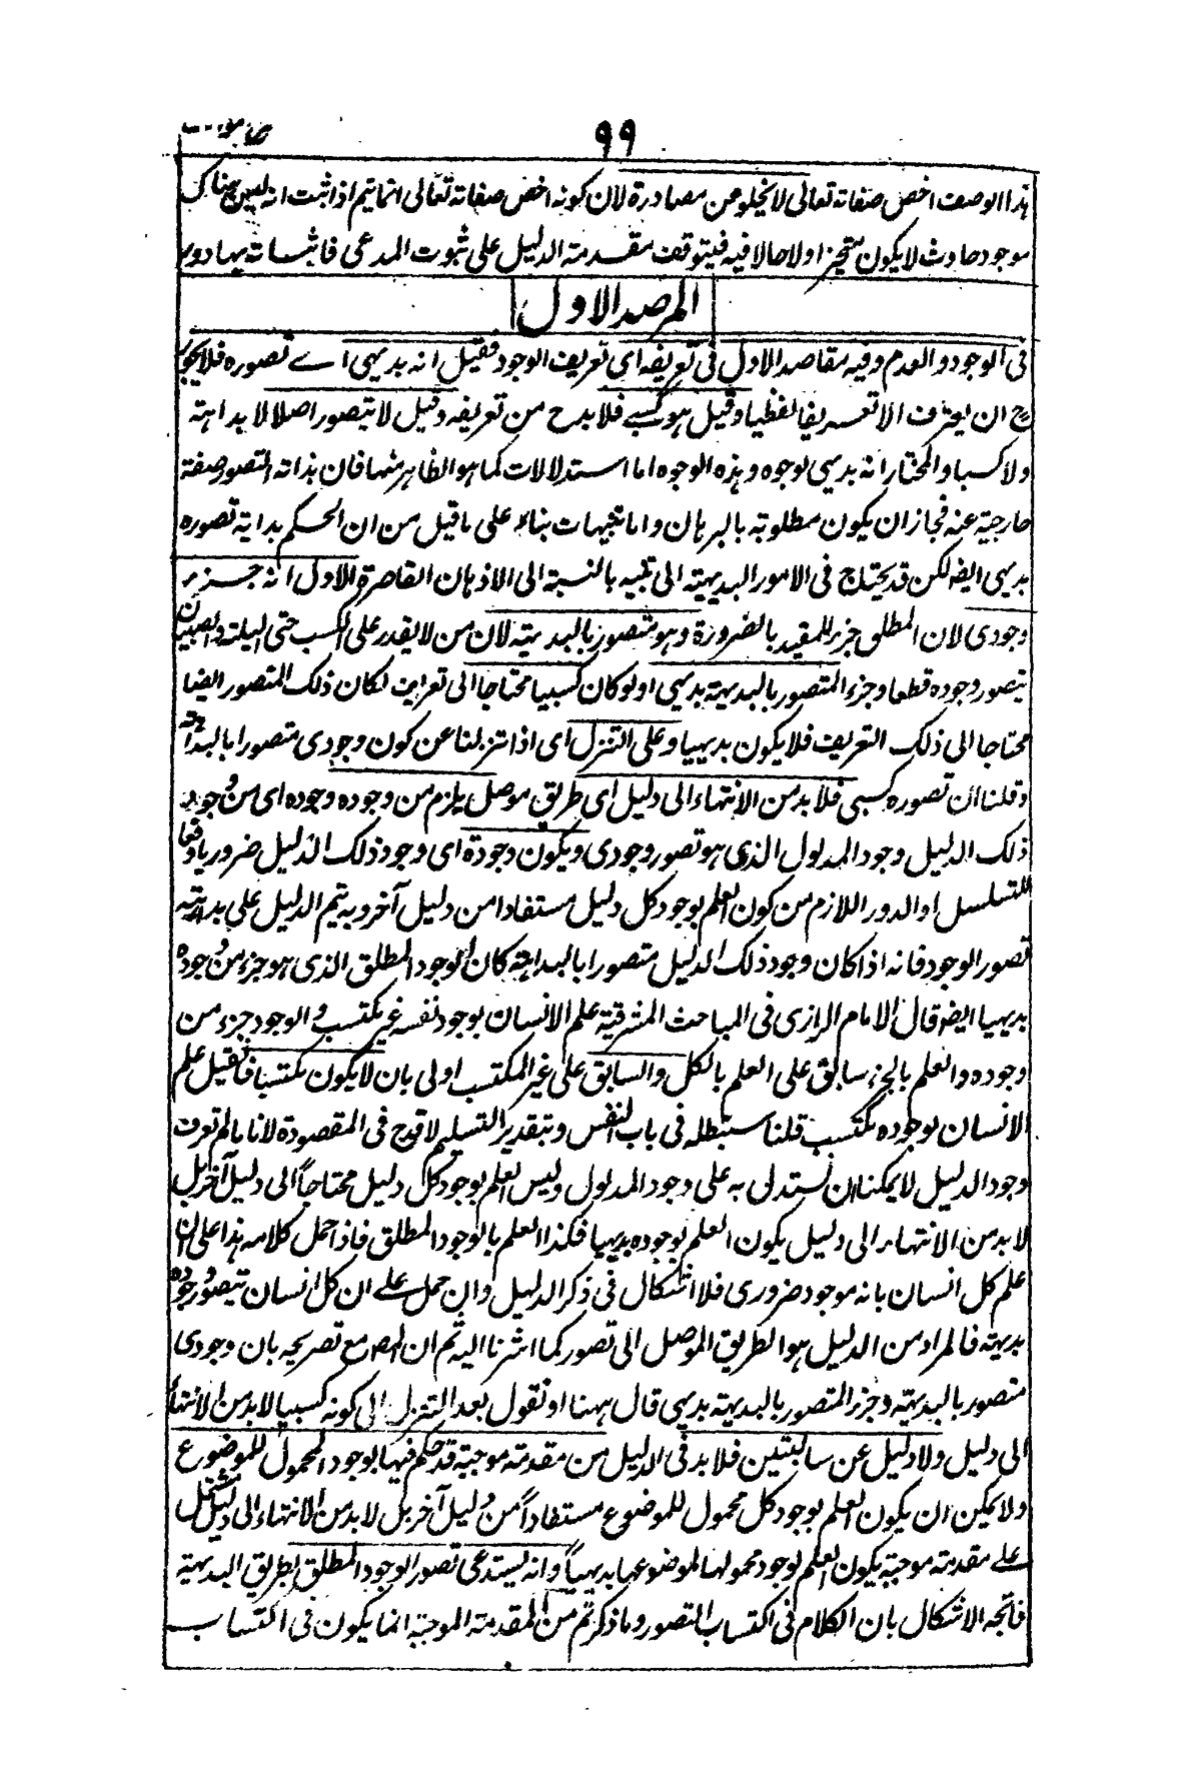 ٩٩
هذا الوصف اخص صفاته تعالى لا يخلو عن مصادرة لان كونه اخص صفاته تعالى انما يتم اذا ثبت انه ليس هناك
موجود حادث لا يكون متحيزا ولا حالا فيه فيتوقف مقدمة الدليل على ثبوت المدعى فاثباته بها دور
المرصد الاول
فى الوجود والعدم وفيه مقاصد الاول فى تعريفه اى تعريف الوجود فقيل انه بديهى اے تصوره فلا يجوز
ح ان يعرف الا تعريفا لفظيا وقيل هو كسبى فلا بد ح من تعريفه وقيل لا يتصور اصلا لا بداهة
ولا كسبا والمختار انه بديهى لوجوه وهذه الوجوه اما استدلالات كما هو الظاهر منها فان بداهة التصور صفة
خارجية عنه فجاز ان يكون مطلوبة بالبرهان واما تنبيهات بناء على ما قيل من ان الحكم بداهة تصوره
بديهى ايضا لكن قد يحتاج فى الامور البديهية الى تنبيه بالنسبة الى الاذهان القاصرة الاول انه جزء
وجودى لان المطلق جزء للمقيد بالضرورة وهو متصور بالبديهية لان من لا يقدر على الكسب حتى البله والصبيان
يتصور وجوده قطعا وجزء المتصور بالبديهية بديهى اذ لو كان كسبيا محتاجا الى تعريف لكان ذلك المتصور ايضا
محتاجا الى ذلك التعريف فلا يكون بديهيا وعلى التنزل اى اذا تنزلنا عن كون وجودى متصورا بالبداهة
وقلنا ان تصوره كسبى فلا بد من الانتهاء الى دليل اى طريق موصل يلزم من وجوده وجوده اى من وجود
ذلك الدليل وجود المدلول الذى هو تصور وجودى ويكون وجوده اى وجود ذلك الدليل ضروريا دفعا
للتسلسل او الدور اللازم من كون العلم بوجود كل دليل مستفادا من دليل آخر وبه يتم الدليل على بداهة
تصور الوجود فانه اذا كان وجود ذلك الدليل متصورا بالبداهة كان الوجود المطلق الذى هو جزء من وجوده
بديهيا ايضا قال الامام الرازى فى المباحث المشرقية علم الانسان بوجود نفسه غير مكتسب والوجود جزء من
وجوده والعلم بالجزء سابق على العلم بالكل والسابق على غير المكتسب اولى بان لا يكون مكتسبا فان قيل علم
الانسان بوجوده مكتسب قلنا سنبطله فى باب النفس وبتقدير التسليم لا قدح فى المقصودة لانا ما لم نعرف
وجود الدليل لا يمكننا ان نستدل به على وجود المدلول وليس العلم بوجود كل دليل محتاجاً الى دليل آخر بل
لا بد من الانتهاء الى دليل يكون العلم بوجوده بديهيا فكذا العلم بالوجود المطلق فاذا حمل كلامه هذا على ان
علم كل انسان بانه موجود ضرورى فلا اشكال فى ذكر الدليل وان حمل على ان كل انسان يتصور وجوده
بديهة فالمراد من الدليل هو الطريق الموصل الى تصور كما اشرنا اليه ثم ان المص مع تصريحه بان وجودى
متصور بالبديهية وجزء المتصور بالبديهية بديهى قال ههنا او نقول بعد التنزل الى كونه كسبيا لا بد من الانتهاء
الى دليل ولا دليل عن سالبتين فلا بد فى الدليل من مقدمة موجبة قد حكم فيها بوجود المحمول للموضوع
ولا يمكن ان يكون العلم بوجود كل محمول للموضوع مستفاداً من دليل آخر بل لا بد من الانتهاء الى دليل مشتمل
على مقدمة موجبة يكون العلم بوجود محمولها لموضوعها بديهياً وانه يستدعى تصور الوجود المطلق بطريق البديهية
فاتجه الاشكال بان الكلام فى اكتساب التصور وما ذكرتم من المقدمة الموجبة انما يكون فى اكتساب